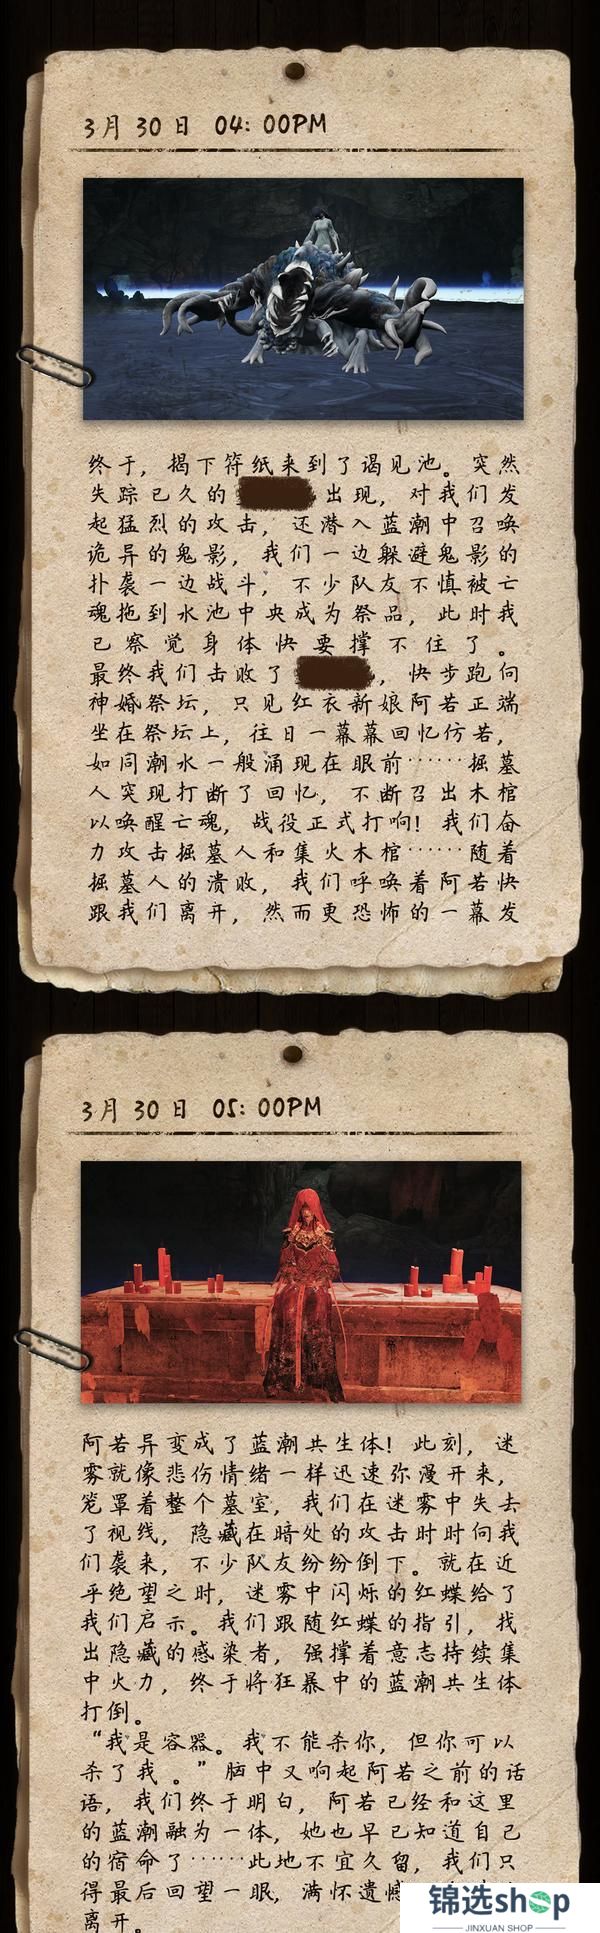 3月30日 04:00PM
终于，揭下符纸来到了谒见池。突然
失踪已久的 出现，对我们发
起猛烈的攻击，还潜入蓝潮中召唤
诡异的鬼影，我们一边躲避鬼影的
扑袭一边战斗，不少队友不慎被亡
魂拖到水池中央成为祭品，此时我
已察觉身体快要撑不住了。
最终我们击败了 ，快步跑向
神婚祭坛，只见红衣新娘阿若正端
坐在祭坛上，往日一幕幕回忆仿若，
如同潮水一般涌现在眼前……掘墓
人突现打断了回忆，不断召出木棺
以唤醒亡魂，战役正式打响！我们奋
力攻击掘墓人和集火木棺……随着
掘墓人的溃败，我们呼唤着阿若快
跟我们离开，然而更恐怖的一幕发
3月30日 05:00PM
阿若异变成了蓝潮共生体！此刻，迷
雾就像悲伤情绪一样迅速弥漫开来，
笼罩着整个墓室，我们在迷雾中失去
了视线，隐藏在暗处的攻击时时向我
们袭来，不少队友纷纷倒下。就在近
乎绝望之时，迷雾中闪烁的红蝶给了
我们启示。我们跟随红蝶的指引，找
出隐藏的感染者，强撑着意志持续集
中火力，终于将狂暴中的蓝潮共生体
打倒。
“我是容器。我不能杀你，但你可以
杀了我。”脑中又响起阿若之前的话
语，我们终于明白，阿若已经和这里
的蓝潮融为一体，她也早已知道自己
的宿命了……此地不宜久留，我们只
得最后回望一眼，满怀遗憾
离开。
锦选shop
JINXUAN SHOP